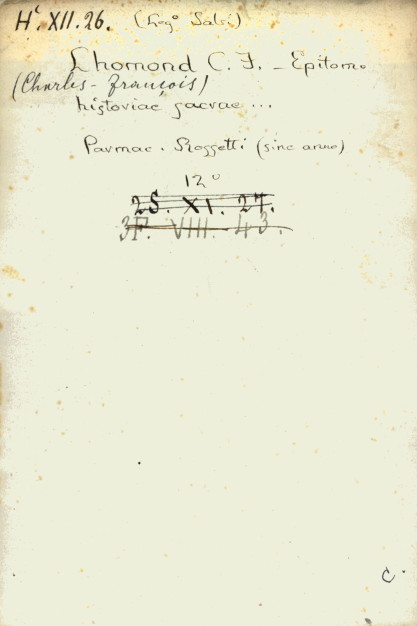 Hᶜ. XII. 26. (Legº Salvi)
Lhomond C. F. - Epitome
(Charles - François)
historiae sacrae ...
Parmae. Rossetti (sine anno)
12º
2S. XI. 27.
3F. VIII. 43.
C.